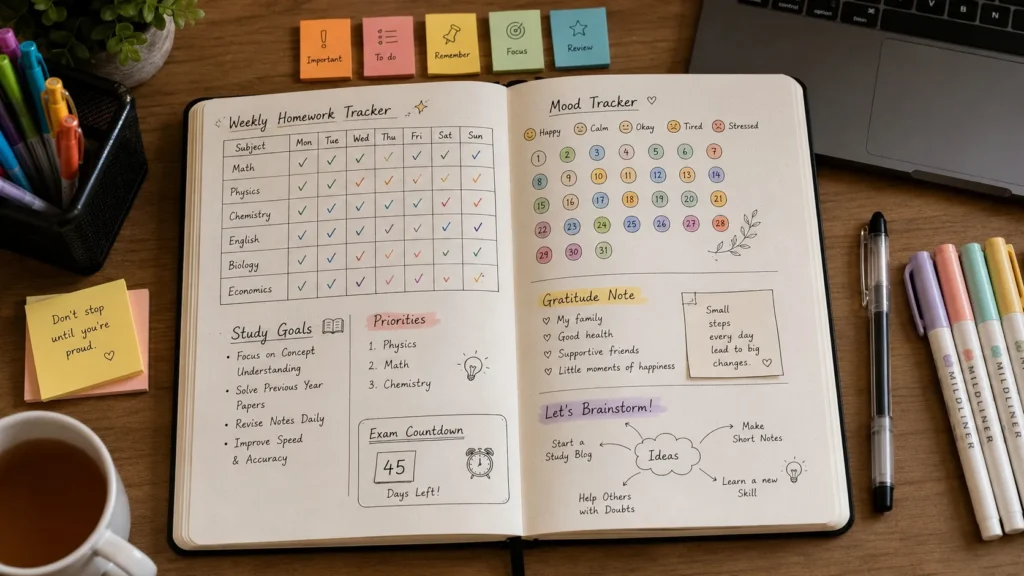 Important
To do
Remember
Focus
Review
Weekly Homework Tracker
Subject Mon Tue Wed Thu Fri Sat Sun
Math ✓ ✓ ✓ ✓ ✓ ✓ ✓
Physics ✓ ✓ ✓ ✓ ✓ ✓ ✓
Chemistry ✓ ✓ ✓ ✓ ✓ ✓ ✓
English ✓ ✓ ✓ ✓ ✓ ✓ ✓
Biology ✓ ✓ ✓ ✓ ✓ ✓ ✓
Economics ✓ ✓ ✓ ✓ ✓ ✓ ✓
Study Goals
• Focus on Concept
Understanding
• Solve Previous Year
Papers
• Revise Notes Daily
• Improve Speed
& Accuracy
Priorities
1. Physics
2. Math
3. Chemistry
Exam Countdown
45
Days Left!
Mood Tracker ♡
Happy Calm Okay Tired Stressed
1 2 3 4 5 6 7
8 9 10 11 12 13 14
15 16 17 18 19 20 21
22 23 24 25 26 27 28
29 30 31
Gratitude Note
♡ My family
♡ Good health
♡ Supportive friends
♡ Little moments of happiness
Small
steps
every day
lead to big
changes. ♡
Let's Brainstorm!
Ideas
Start a
Study Blog
Make
Short Notes
Help Others
with Doubts
Learn a new
Skill
Don't stop
until you're
proud. ♡
MILDLINER
MILDLINER
MILDLINER
MILDLINER
V B N